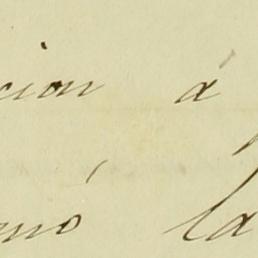 cion á
mó la